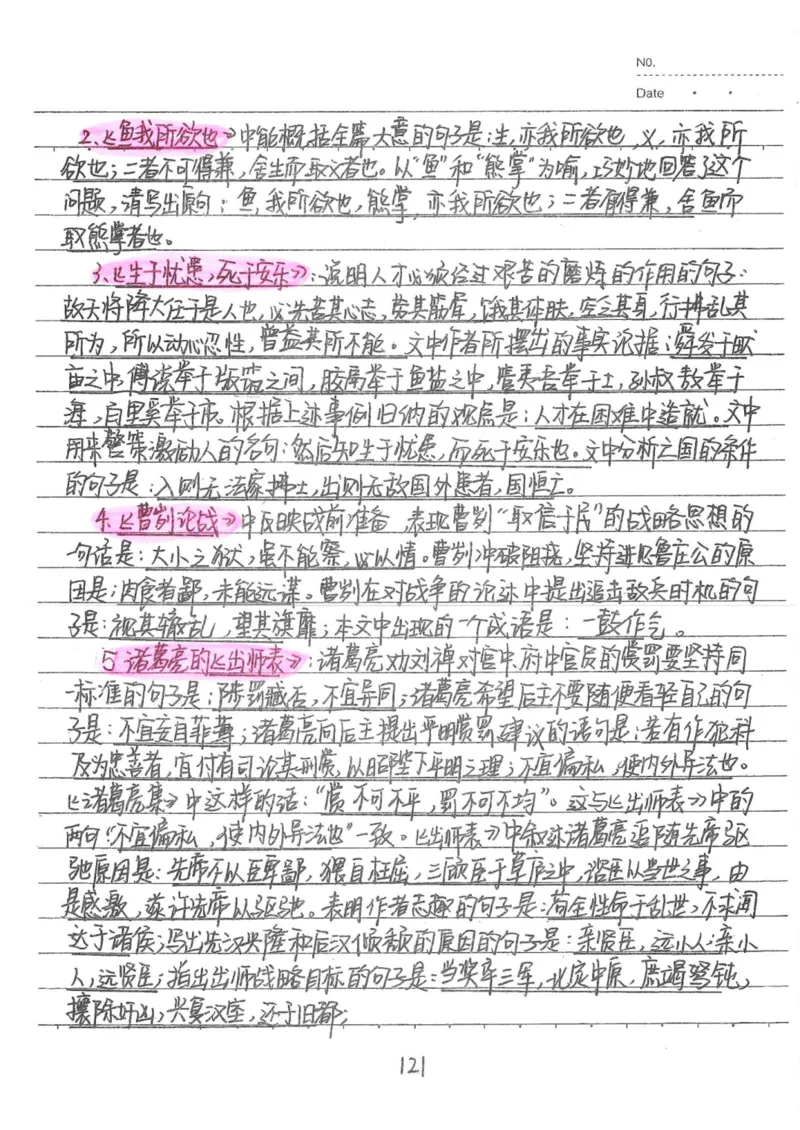 NO.
Date
2、《鱼我所欲也》中能概括全篇大意的句子是:生,亦我所欲也,义,亦我所
欲也;二者不可得兼,舍生而取义者也。以“鱼”和“熊掌”为喻,巧妙地回答了这个
问题,请写出原句:鱼,我所欲也,熊掌,亦我所欲也;二者得兼,舍鱼而
取熊掌者也。
3、《生于忧患,死于安乐》:说明人才必须经过艰苦的磨炼的作用的句子:
故天将降大任于是人也,必先苦其心志,劳其筋骨,饿其体肤,空乏其身,行拂乱其
所为,所以动心忍性,曾益其所不能。文中作者所摆出的事实论据:舜发于畎
亩之中,傅说举于版筑之间,胶鬲举于鱼盐之中,管夷吾举于士,孙叔敖举于
海,百里奚举于市。根据上述事例归纳的观点是:人才在困难中造就。文中
用来警策激励人的名句:然后知生于忧患,而死于安乐也。文中分析亡国的条件
的句子是:入则无法家拂士,出则无敌国外患者,国恒亡。
4.《曹刿论战》中反映战前准备,表现曹刿“取信于民”的战略思想的
一句话是:大小之狱,虽不能察,必以情。曹刿冲破阻挠,坚持进见鲁庄公的原
因是:肉食者鄙,未能远谋。曹刿在对战争的论述中提出追击敌兵时机的句
子是:视其辙乱,望其旗靡;本文中出现的一个成语是:一鼓作气。
5 诸葛亮的《出师表》:诸葛亮劝刘禅对宫中、府中官员的赏罚要坚持同
一标准的句子是:陟罚臧否,不宜异同;诸葛亮希望后主不要随便看轻自己的句
子是:不宜妄自菲薄;诸葛亮向后主提出平明赏罚建议的语句是:若有作犯科
及为忠善者,宜付有司论其刑赏,以昭陛下平明之理;不宜偏私,使内外异法也。
《诸葛亮集》中这样的话:“赏不可不平,罚不可不均”。这与《出师表》中的
两句“不宜偏私,使内外异法也”一致。《出师表》中叙述诸葛亮追随先帝驱
驰原因是:先帝不以臣卑鄙,猥自枉屈,三顾臣于草庐之中,谘臣以当世之事,由
是感激,遂许先帝以驱驰。表明作者志趣的句子是:苟全性命于乱世,不求闻
达于诸侯;写出先汉兴隆和后汉倾颓的原因的句子是:亲贤臣,远小人;亲小
人,远贤臣;指出出师战略目标的句子是:当奖率三军,北定中原,庶竭驽钝,
攘除奸凶,兴复汉室,还于旧都;
121